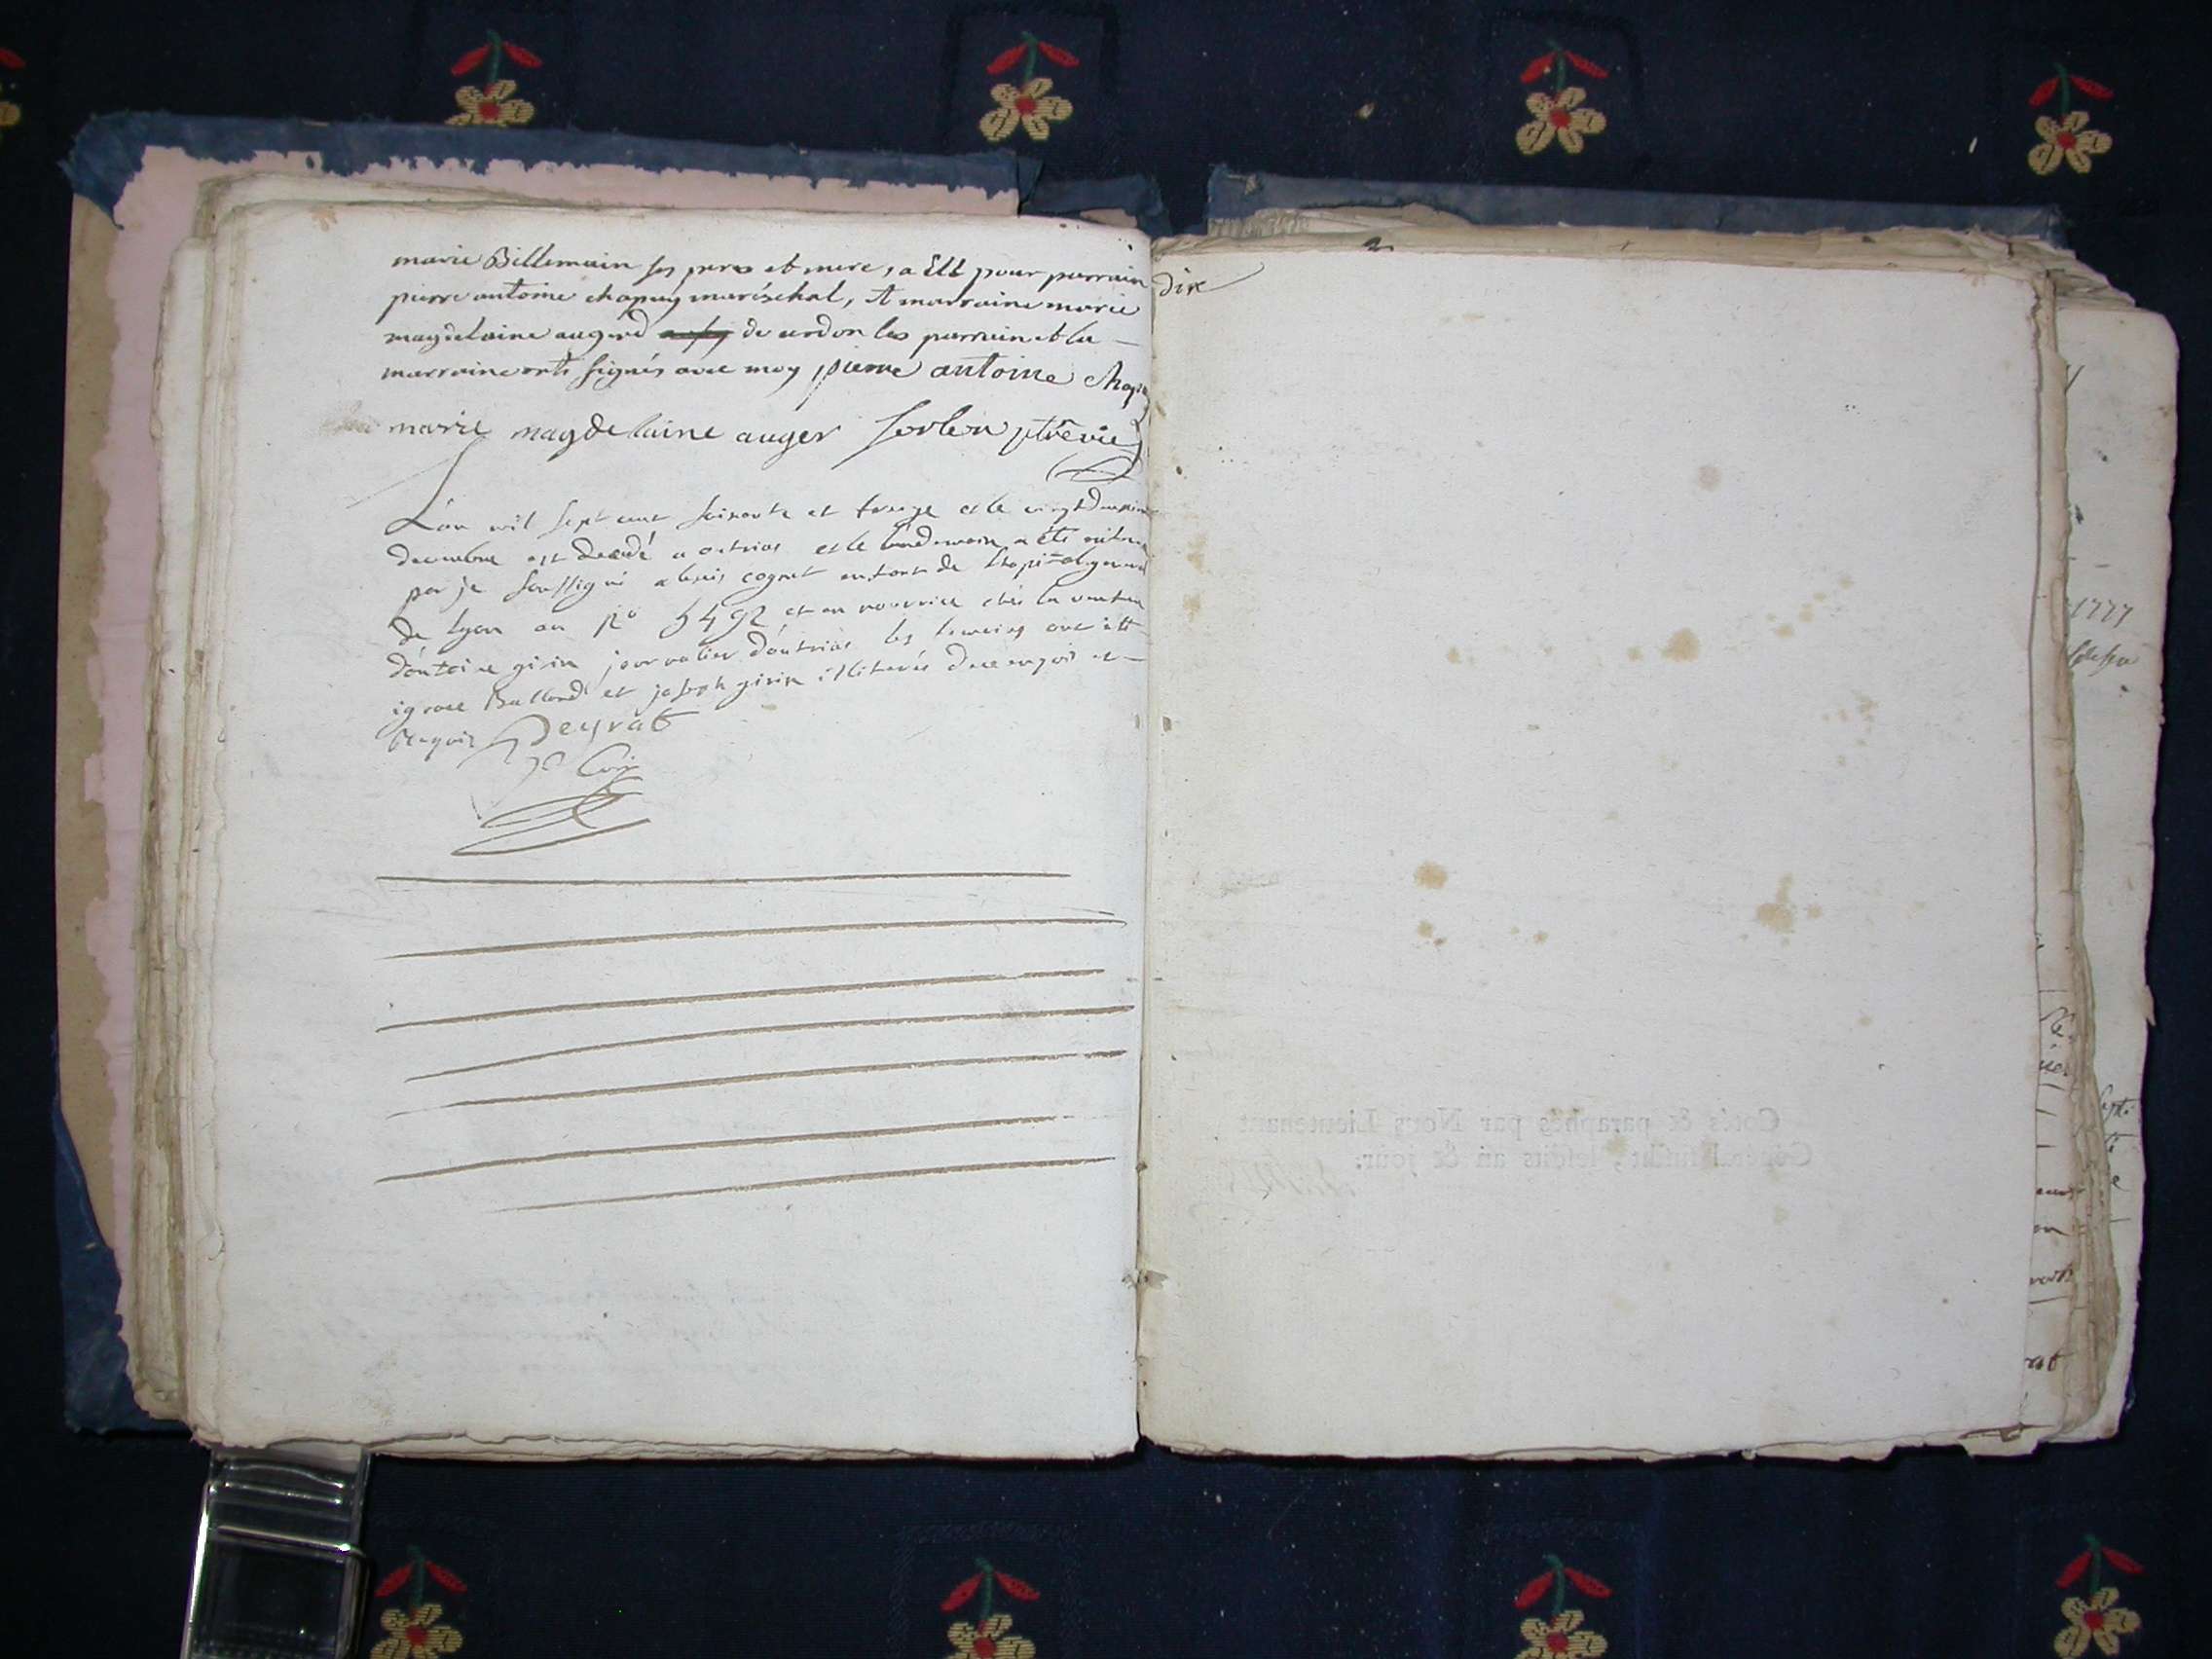 marie Billemain ses pere et mere, a Eté pour parrain
pierre antoine chapuy maréschal, et marraine marie
magdelaine augerd de cerdon les parrain et la
marraine onts signés avec moy pierre antoine chapuy
marie magdelaine auger sorlin ptre vic
L'an mil sept cent soixante et treize et le vingt deuxieme
decembre est decedé a outrias et le lendemain a été
par je soussigné alexis cognet enfant de l'hopital general
de lyon au no 5492 et en nourrice chés la
d'antoine girin journalier d'outrias les temoins ont été
ignace Balland et joseph girin illiterés de ce enquis et
Requis Deyrat
curé
dix
1777
Cotés & paraphés par Nous Lieutenant
Général susdit, lesdits an & jour.